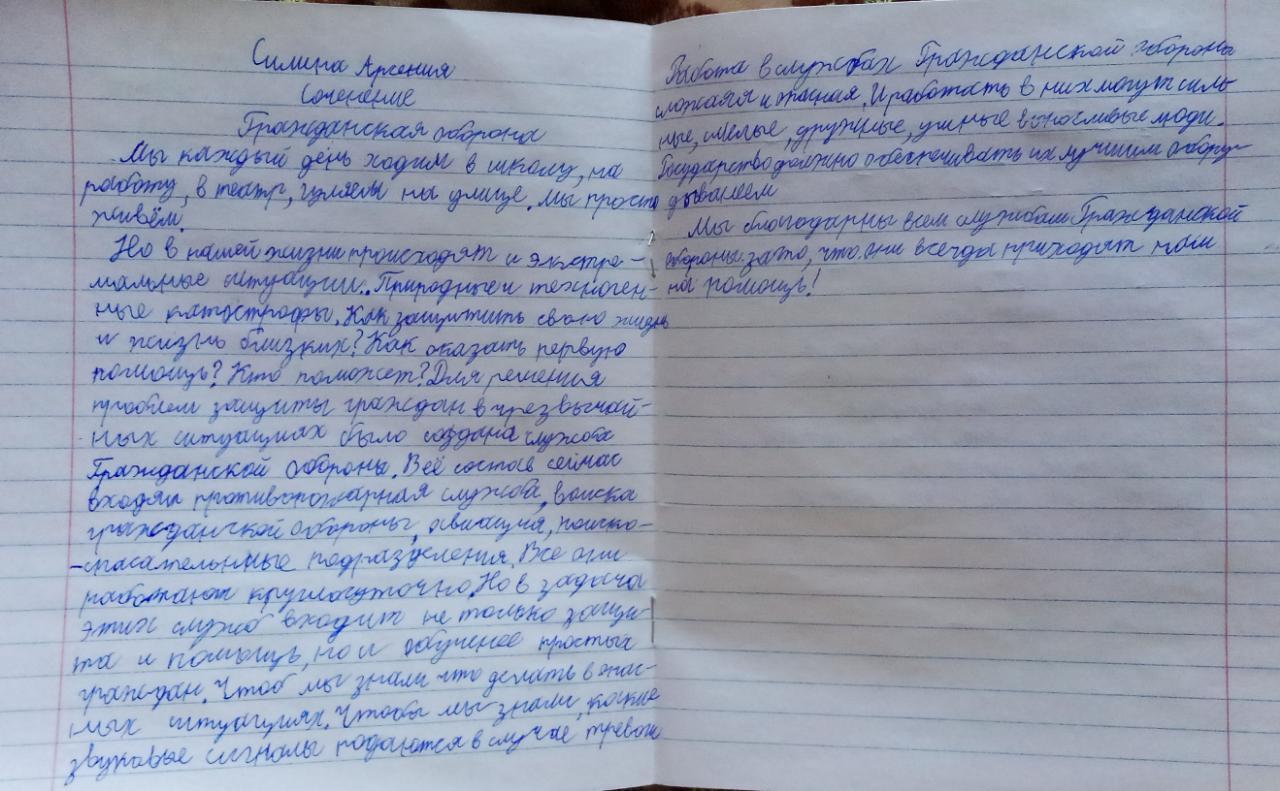 Силина Арсения
Соченение
Гражданская оборона
Мы каждый день ходим в школу, на
работу, в театр, гуляем на улице. Мы просто
живём.
Но в нашей жизни происходят и экстре-
мальные ситуации. Природные и техноген-
ные катострофы. Как защитить свою жизнь
и жизнь близких? Как оказать первую
помощь? Кто поможет? Для решения
проблем защиты граждан в чрезвычай-
ных ситуациях было создана служба
Гражданской обороны. В её состав сейчас
входят противопожарная служба, войска
гражданской обороны, авиация, поиско-
-спасательные подразделения. Все они
работают круглосуточно. Но в задача
этих служб входит не только защи-
та и помощь, но и обучение простых
граждан. Чтоб мы знали что делать в опас-
ных ситуациях. Чтобы мы знали, какие
звуковые сигналы подаются в случае тревоги
Работа в службах Гражданской обороны
сложная и опасная. И работать в них могут силь-
ные, смелые, дружные, умные выносливые люди.
Государство должно обеспечивать их лучшим обору-
дованием
Мы благодарны всем службам Гражданской
обороны за то, что они всегда приходят нам
на помощь!